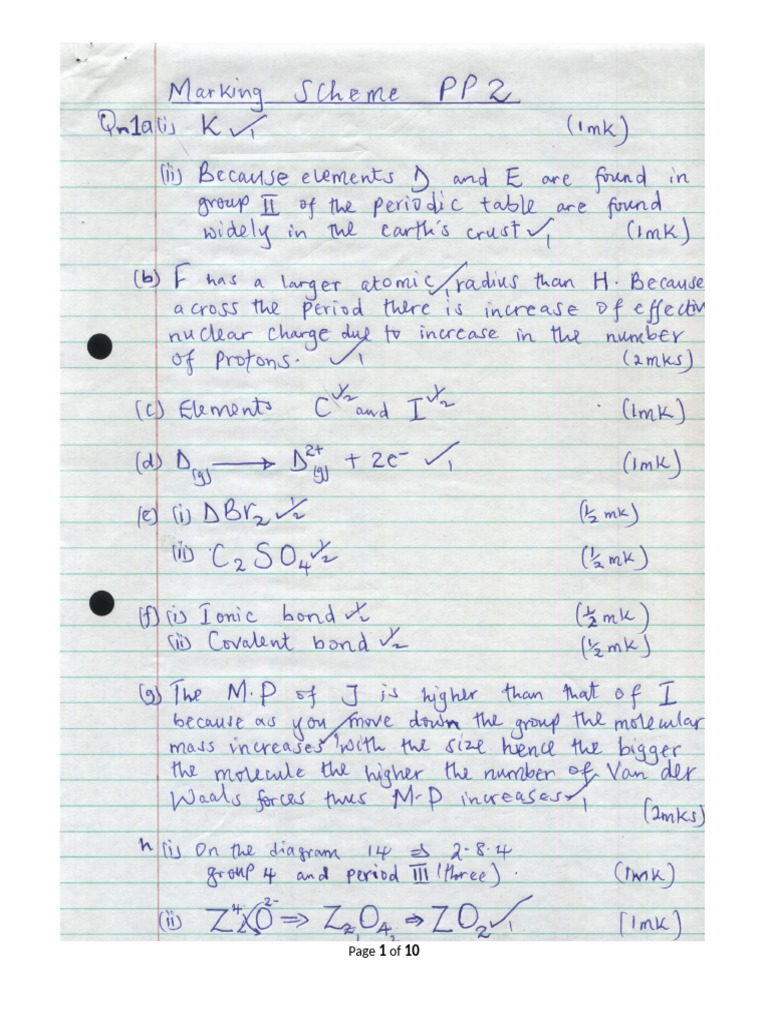 Marking Scheme PP2
Qn1a(i) K ✓1 (1mk)
(ii) Because elements D and E are found in
group II of the periodic table are found
widely in the earth's crust ✓1 (1mk)
(b) F has a larger atomic ✓1 radius than H. Because
across the period there is increase of effectiv
nuclear charge due to increase in the number
of protons. ✓1 (2mks)
(c) Elements C ✓½ and I ✓½ (1mk)
(d) D(g) ⟶ D²⁺(g) + 2e⁻ ✓1 (1mk)
(e) (i) DBr₂ ✓½ (½ mk)
(ii) C₂SO₄ ✓½ (½ mk)
(f) (i) Ionic bond ✓½ (½ mk)
(ii) Covalent bond ✓½ (½ mk)
(g) The M.P of J is higher than that of I
because as you move down the group the molecular
mass increases ✓1 with the size hence the bigger
the molecule the higher the number of Van der
Waals forces thus M.P increases ✓1
(2mks)
h (i) On the diagram 14 ⇒ 2.8.4
group 4 and period III (three). (1mk)
(ii) Z⁴ O²⁻ ⇒ Z₂O₄ ⇒ ZO₂ ✓1 [1mk)
Page 1 of 10